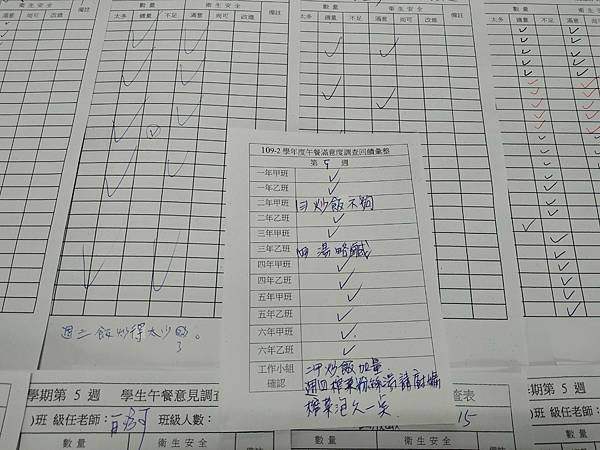 數量 衛生安全 備註
太多 適量 不足 滿意 尚可 改進
數量 衛生安全 備註
太多 適量 不足 滿意 尚可 改進
數量 衛生安全
太多 適量 不足 滿意 尚可 改進
109-2 學年度午餐滿意度調查回饋彙整
第 5 週
一年甲班 ✓
一年乙班 ✓
二年甲班 曰炒飯不夠
二年乙班 ✓
三年甲班 ✓
三年乙班 四 湯略鹹
四年甲班 ✓
四年乙班 ✓
五年甲班 ✓
五年乙班 ✓
六年甲班 ✓
六年乙班 ✓
工作小組確認 二甲炒飯加量
週四榨菜粉絲湯請廚媽
榨菜泡久一點
週二飯炒得太少
學期第 5 週 學生午餐意見調查
)班 級任老師： 班級人數：
數量 衛生安全
查表
15
學期第 5 週
)班 級任老師：
數量